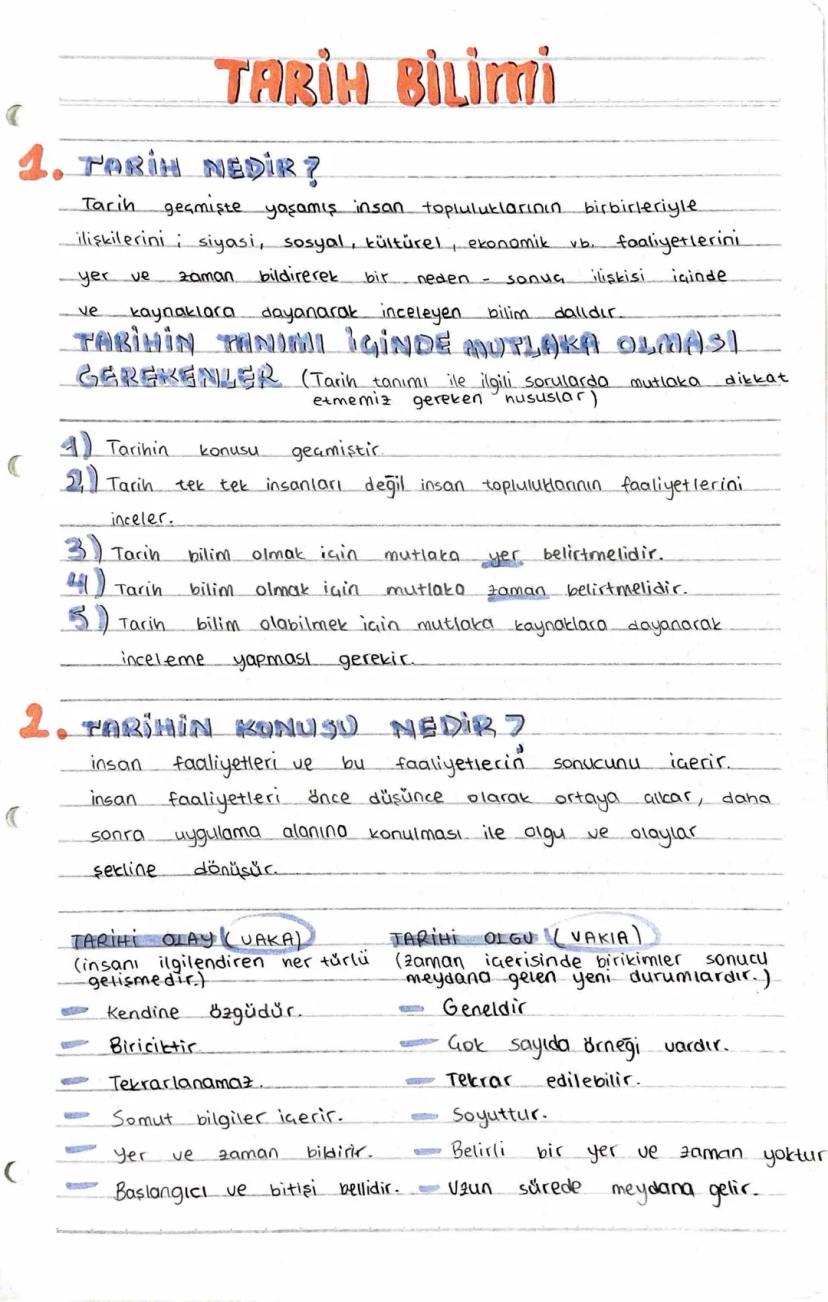 TARİH BİLİMİ
1. TARİH NEDİR?
Tarih geçmişte yaşamış insan topluluklarının birbirleriyle
ilişkilerini ; siyasi, sosyal, kültürel, ekonomik vb. faaliyetlerini
yer ve zaman bildirerek bir neden - sonuç ilişkisi içinde
ve kaynaklara dayanarak inceleyen bilim dalıdır.
TARİHİN TANIMI İÇİNDE MUTLAKA OLMASI
GEREKENLER (Tarih tanımı ile ilgili sorularda mutlaka dikkat
etmemiz gereken hususlar)
1) Tarihin konusu geçmiştir.
2) Tarih tek tek insanları değil insan topluluklarının faaliyetlerini
inceler.
3) Tarih bilim olmak için mutlaka yer belirtmelidir.
4) Tarih bilim olmak için mutlaka zaman belirtmelidir.
5) Tarih bilim olabilmek için mutlaka kaynaklara dayanarak
inceleme yapması gerekir.
2. TARİHİN KONUSU NEDİR?
insan faaliyetleri ve bu faaliyetlerin sonucunu içerir.
insan faaliyetleri önce düşünce olarak ortaya çıkar, daha
sonra uygulama alanına konulması ile olgu ve olaylar
şekline dönüşür.
TARİHİ OLAY (VAKA)
(insanı ilgilendiren her türlü
gelişmedir.)
- Kendine özgüdür.
- Biriciktir.
- Tekrarlanamaz.
- Somut bilgiler içerir.
- Yer ve zaman bildirir.
- Başlangıcı ve bitişi bellidir.
TARİHİ OLGU (VAKIA)
(zaman içerisinde birikimler sonucu
meydana gelen yeni durumlardır.)
- Geneldir
- Çok sayıda örneği vardır.
- Tekrar edilebilir.
- Soyuttur.
- Belirli bir yer ve zaman yoktur
- Uzun sürede meydana gelir.